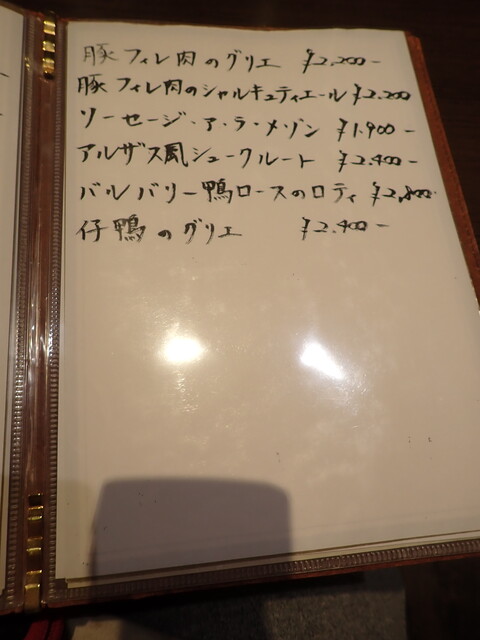 豚フィレ肉のグリエ ¥2,200-
豚フィレ肉のシャルキュティエール ¥2,200
ソーセージ・ア・ラ・メゾン ¥1,900-
アルザス風シュークルート ¥2,400-
バルバリー鴨ロースのロティ ¥2,800
仔鴨のグリエ ¥2,400-